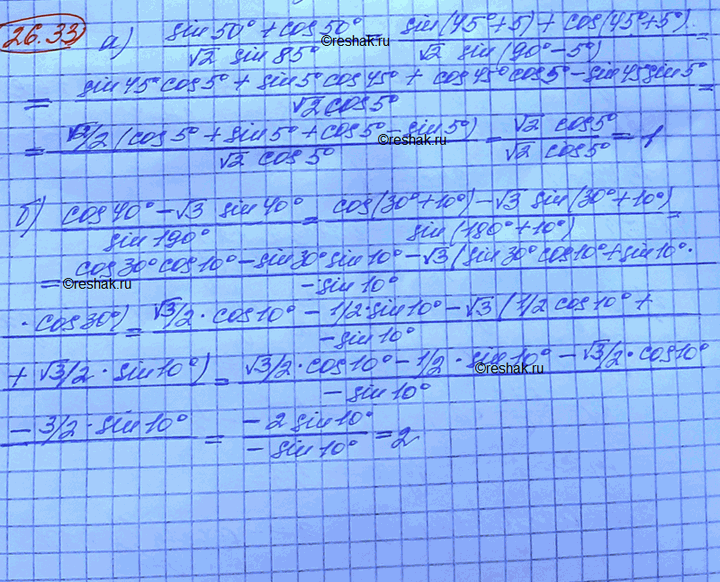 26.33 а) sin50° + cos50° / √2 sin85° = sin(45°+5) + cos(45°+5°) / √2 sin(90°-5°) =
= sin45°cos5° + sin5°cos45° + cos45°cos5° - sin45°sin5° / √2 cos5° =
= √2/2 (cos5° + sin5° + cos5° - sin5°) / √2 cos5° = √2 cos5° / √2 cos5° = 1
б) cos40° - √3 sin40° / sin190° = cos(30°+10°) - √3 sin(30°+10°) / sin(180°+10°) =
= cos30°cos10° - sin30°sin10° - √3(sin30°cos10° + sin10° · / - sin10°
· cos30°) = √3/2 · cos10° - 1/2 · sin10° - √3 (1/2 cos10° + / - sin10°
+ √3/2 · sin10°) = √3/2 · cos10° - 1/2 · sin10° - √3/2 · cos10° / - sin10°
- 3/2 · sin10° = - 2 sin10° / - sin10° = 2
©reshak.ru
©reshak.ru
©reshak.ru
©reshak.ru